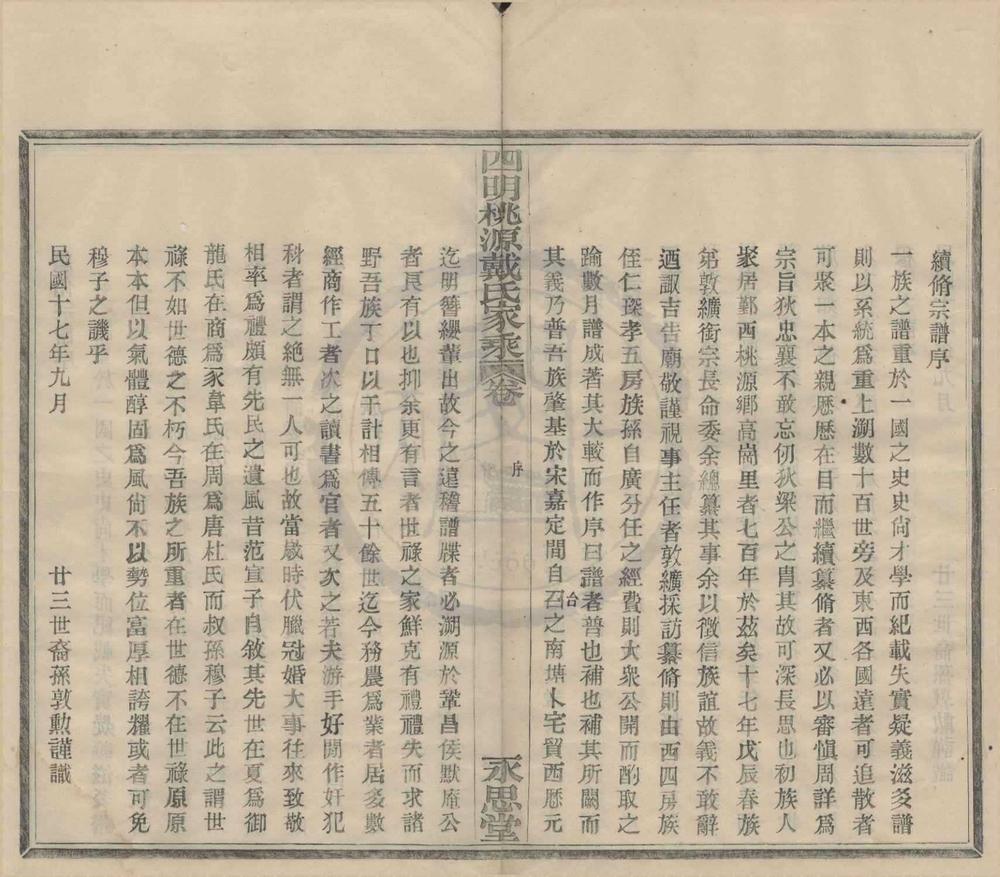 續脩宗譜序
一族之譜重於一國之史史尙才學而紀載失實疑義滋多譜
則以系統爲重上溯數十百世旁及東西各國遠者可追散者
可聚一本之親歷歷在目而繼續纂脩者又必以審愼周詳爲
宗旨狄忠襄不敢忘仞狄梁公之胄其故可深長思也初族人
聚居鄞西桃源鄕高崗里者七百年於茲矣十七年戊辰春族
弟敦纊銜宗長命委余總纂其事余以徵信族誼故義不敢辭
迺諏吉告廟敬謹視事主任者敦纊採訪纂脩則由西四房族
侄仁琛孝五房族孫自廣分任之經費則大衆公開而酌取之
踰數月譜成著其大較而作序曰譜者普也補也補其所闕而
其義乃普吾族肇基於宋嘉定間自台之南塘卜宅貿西歷元
四明桃源戴氏家乘 卷 序 永思堂
迄明簪纓輩出故今之遠稽譜牒者必溯源於鞏昌侯默庵公
者良有以也抑余更有言者世祿之家鮮克有禮禮失而求諸
野吾族丁口以千計相傳五十餘世迄今務農爲業者居多數
經商作工者次之讀書爲官者又次之若夫游手好閒作奸犯
科者謂之絕無一人可也故當歲時伏臘冠婚大事往來致敬
相率爲禮頗有先民之遺風昔范宣子自敘其先世在夏爲御
龍氏在商爲豕韋氏在周爲唐杜氏而叔孫穆子云此之謂世
祿不如世德之不朽今吾族之所重者在世德不在世祿原原
本本但以氣體醇固爲風尙不以勢位富厚相誇耀或者可免
穆子之譏乎
民國十七年九月 廿三世裔孫敦勳謹識